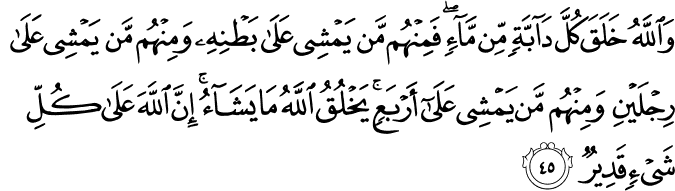 وَٱللَّهُ خَلَقَ كُلَّ دَآبَّةٍ مِّن مَّآءٍ ۖ فَمِنْهُم مَّن يَمْشِى عَلَىٰ بَطْنِهِۦ وَمِنْهُم مَّن يَمْشِى عَلَىٰ
رِجْلَيْنِ وَمِنْهُم مَّن يَمْشِى عَلَىٰٓ أَرْبَعٍ ۚ يَخْلُقُ ٱللَّهُ مَا يَشَآءُ ۚ إِنَّ ٱللَّهَ عَلَىٰ كُلِّ
شَىْءٍ قَدِيرٌ ٤٥